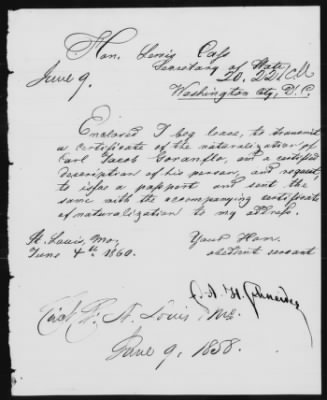 Hon. Lewis Cass
Secretary of State
June 9.
20.221
Washington City, D. C.
Enclosed I beg leave, to transmit
a certificate of the naturalization of
Carl Jacob Goranflo, and a certified
description of his person, and request,
to issue a passport and sent the
same with the acompanying certificate
of naturalization to my address.
St. Louis, Mo,
Your Hon.
June 4th 1860.
obedient servant
Schneider
St. Louis, Mo.
June 9, 1858.